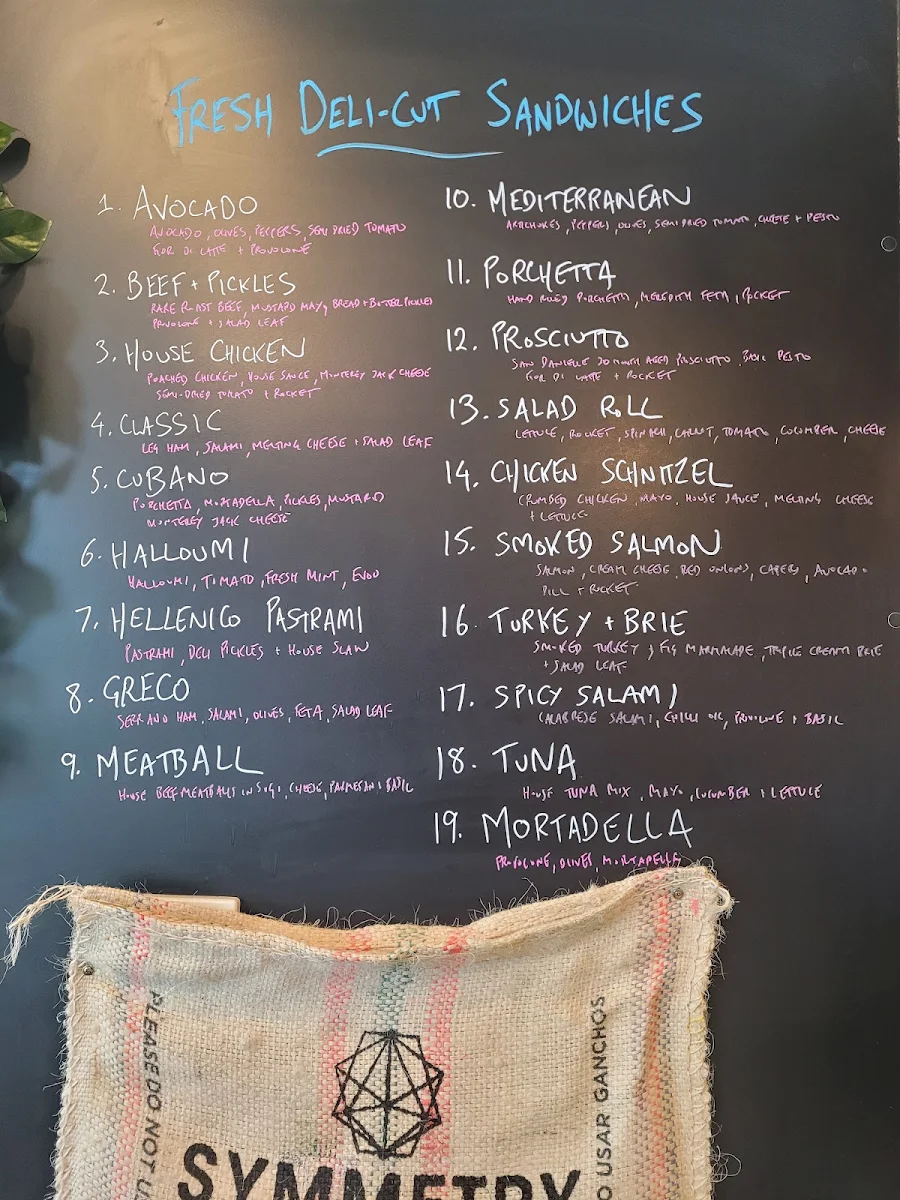 FRESH DELI-CUT SANDWICHES
1. AVOCADO
AVOCADO, OLIVES, PEPPERS, SEMI DRIED TOMATO
FIOR DI LATTE + PROVOLONE
2. BEEF + PICKLES
RARE ROAST BEEF, MUSTARD MAYO, BREAD + BUTTER PICKLES
PROVOLONE + SALAD LEAF
3. HOUSE CHICKEN
POACHED CHICKEN, HOUSE SAUCE, MONTEREY JACK CHEESE
SEMI-DRIED TOMATO + ROCKET
4. CLASSIC
LEG HAM, SALAMI, MELTING CHEESE + SALAD LEAF
5. CUBANO
PORCHETTA, MORTADELLA, PICKLES, MUSTARD
MONTEREY JACK CHEESE
6. HALLOUMI
HALLOUMI, TOMATO, FRESH MINT, EVOO
7. HELLENIC PASTRAMI
PASTRAMI, DELI PICKLES + HOUSE SLAW
8. GRECO
SERRANO HAM, SALAMI, OLIVES, FETA, SALAD LEAF
9. MEATBALL
HOUSE BEEF MEATBALLS IN SUGO, CHEESE, PARMESAN + BASIL
10. MEDITERRANEAN
ARTICHOKES, PEPPERS, OLIVES, SEMI DRIED TOMATO, CHEESE + PESTO
11. PORCHETTA
HAND ROLLED PORCHETTA, MEREDITH FETA, ROCKET
12. PROSCIUTTO
SAN DANIELLE 20 MONTH AGED PROSCIUTTO, BASIL PESTO
FIOR DI LATTE + ROCKET
13. SALAD ROLL
LETTUCE, ROCKET, SPINACH, CARROT, TOMATO, CUCUMBER, CHEESE
14. CHICKEN SCHNITZEL
CRUMBED CHICKEN, MAYO, HOUSE SAUCE, MELTING CHEESE
+ LETTUCE
15. SMOKED SALMON
SALMON, CREAM CHEESE, RED ONIONS, CAPERS, AVOCADO
DILL + ROCKET
16. TURKEY + BRIE
SMOKED TURKEY, FIG MARMALADE, TRIPLE CREAM BRIE
+ SALAD LEAF
17. SPICY SALAMI
CALABRESE SALAMI, CHILLI OIL, PROVOLONE + BASIL
18. TUNA
HOUSE TUNA MIX, MAYO, CUCUMBER + LETTUCE
19. MORTADELLA
PROVOLONE, OLIVES, MORTADELLA
PLEASE DO NOT U
O USAR GANCHOS
SYMMETRY